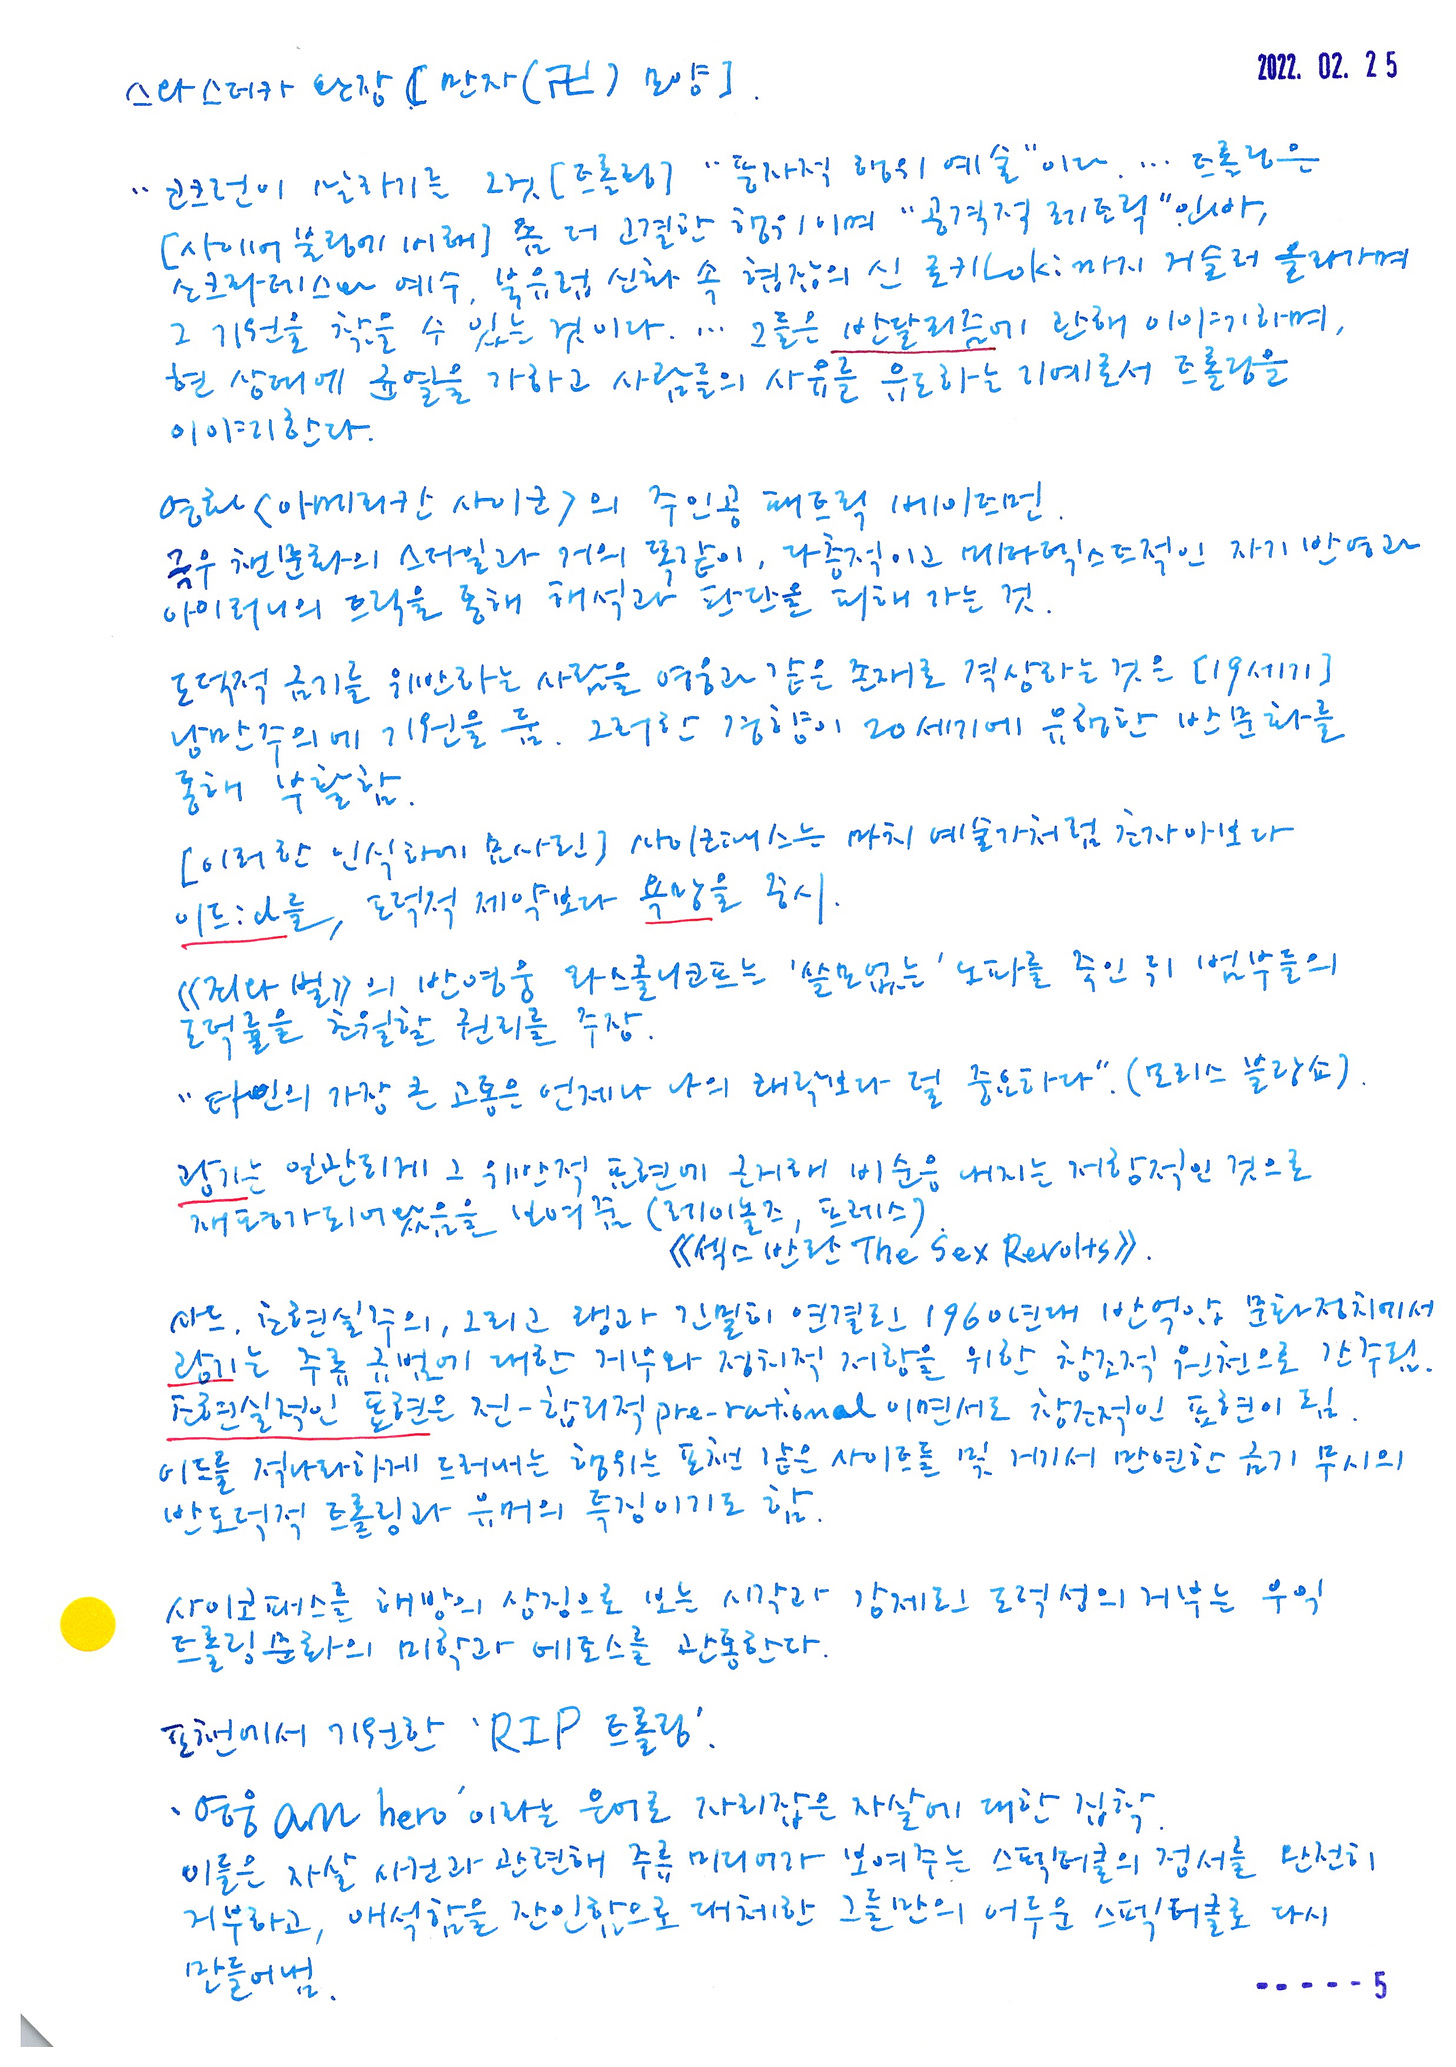 2022. 02. 25
스와스티카 완장 [만자(卍) 모양].
"코크런이 말하기를 그것[트롤링] "풍자적 행위 예술"이다. … 트롤링은
[사이버 불링에 비해] 좀 더 고결한 행위이며 "공격적 레토릭"인바,
소크라테스와 예수, 북유럽 신화 속 협잡의 신 로키Loki까지 거슬러 올라가며
그 기원을 찾을 수 있는 것이다. … 그들은 반달리즘에 관해 이야기하며,
현 상태에 균열을 가하고 사람들의 사유를 유도하는 기예로서 트롤링을
이야기한다.
영화 <아메리칸 사이코>의 주인공 패트릭 베이트먼.
극우 챈문화의 스타일과 거의 똑같이, 다층적이고 메타텍스트적인 자기 반영과
아이러니의 트릭을 통해 해석과 판단을 피해 가는 것.
도덕적 금기를 위반하는 사람을 영웅과 같은 존재로 격상하는 것은 [19세기]
낭만주의에 기원을 둠. 그러한 경향이 20세기에 유행한 반문화를
통해 부활함.
[이러한 인식하에 묘사된] 사이코패스는 마치 예술가처럼 초자아보다
이드id를, 도덕적 제약보다 욕망을 중시.
《죄와 벌》의 반영웅 라스콜니코프는 '쓸모없는' 노파를 죽인 뒤 범부들의
도덕률을 초월할 권리를 주장.
"타인의 가장 큰 고통은 언제나 나의 쾌락보다 덜 중요하다". (모리스 블랑쇼).
광기는 일관되게 그 위반적 표현에 근거해 비순응 내지는 저항적인 것으로
재평가되어 왔음을 보여줌 (레이놀즈, 프레스).
《섹스 반란 The Sex Revolts》.
사드, 초현실주의, 그리고 랭과 긴밀히 연결된 1960년대 반억압 문화정치에서
광기는 주류 규범에 대한 거부와 정치적 저항을 위한 창조적 원천으로 간주됨.
초현실적인 표현은 전-합리적pre-rational이면서도 창조적인 표현이 됨.
이드를 적나라하게 드러내는 행위는 포챈 같은 사이트들 및 거기서 만연한 금기 무시의
반도덕적 트롤링과 유머의 특징이기도 함.
사이코패스를 해방의 상징으로 보는 시각과 강제된 도덕성의 거부는 우익
트롤링 문화의 미학과 에토스를 관통한다.
포챈에서 기원한 'RIP 트롤링'.
'영웅 an hero'이라는 은어로 자리잡은 자살에 대한 집착.
이들은 자살 사건과 관련해 주류 미디어가 보여주는 스펙터클의 정서를 완전히
거부하고, 애석함을 잔인함으로 대체한 그들만의 어두운 스펙터클로 다시
만들어냄.
-----5